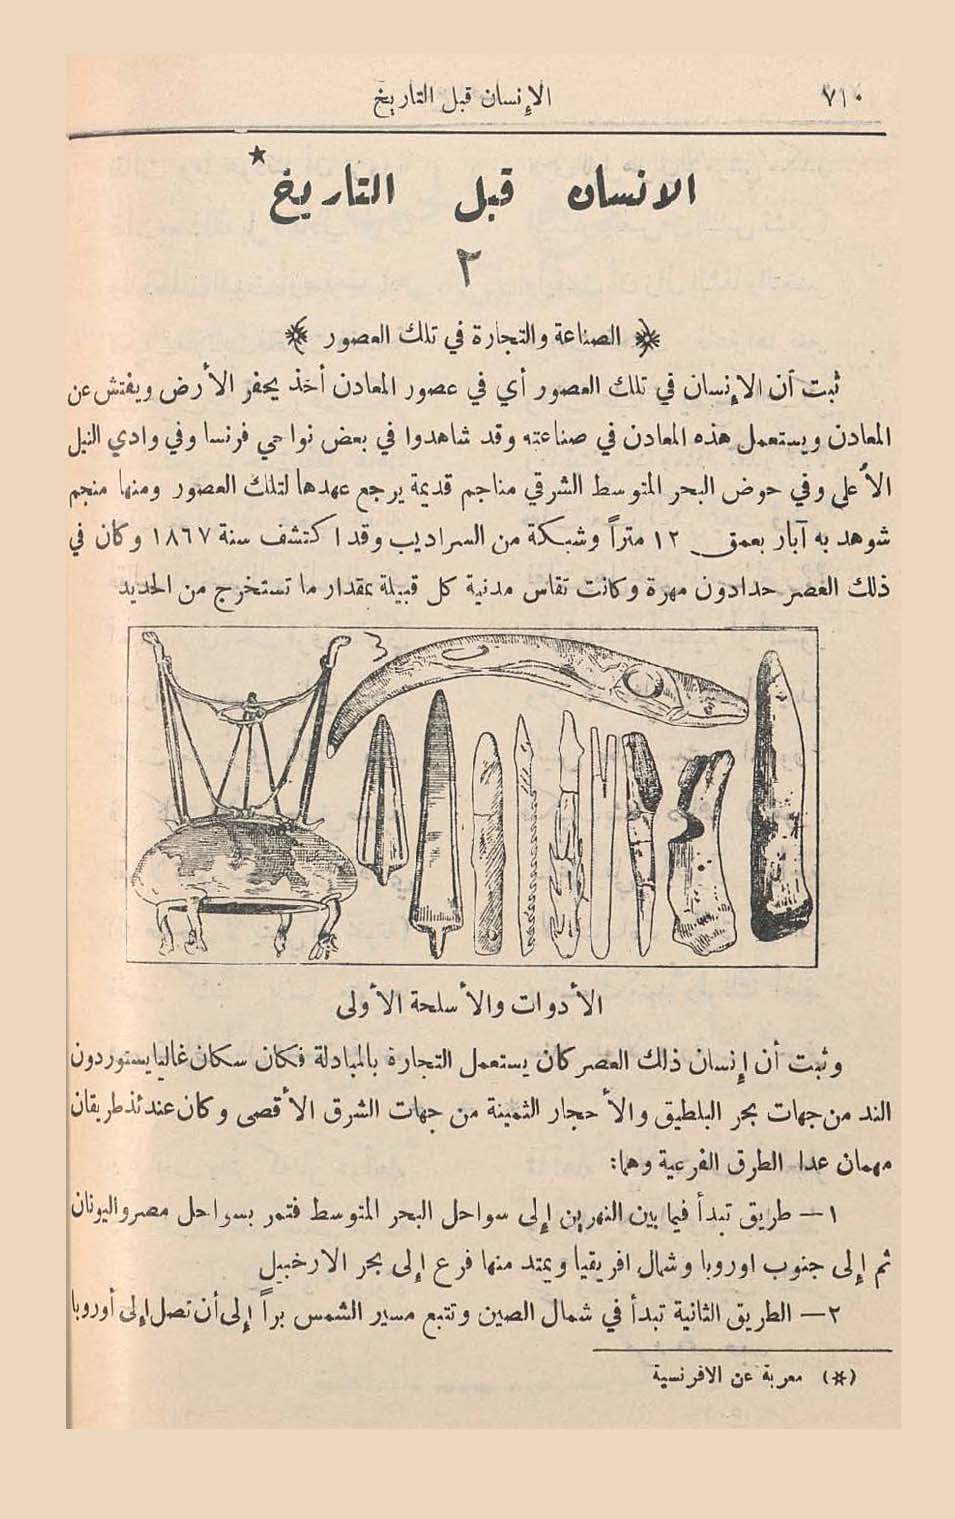 ٧١٠
الإنسان قبل التاريخ
الانسان قبل التاريخ *
٢
﴿ الصناعة والتجارة في تلك العصور ﴾
ثبت أن الإنسان في تلك العصور أي في عصور المعادن أخذ يحفر الأرض ويفتش عن
المعادن ويستعمل هذه المعادن في صناعته وقد شاهدوا في بعض نواحي فرنسا وفي وادي النيل
الأعلى وفي حوض البحر المتوسط الشرقي مناجم قديمة يرجع عهدها لتلك العصور ومنها منجم
شوهد به آبار بعمق ١٢ متراً وشبكة من السراديب وقد اكتشف سنة ١٨٦٧ وكان في
ذلك العصر حدادون مهرة وكانت تقاس مدنية كل قبيلة بمقدار ما تستخرج من الحديد
الأدوات والأسلحة الأولى
وثبت أن إنسان ذلك العصر كان يستعمل التجارة بالمبادلة فكان سكان غاليا يستوردون
الند من جهات بحر البلطيق والأحجار الثمينة من جهات الشرق الأقصى وكان عندئذ طريقان
مهمان عدا الطرق الفرعية وهما:
١ — طريق تبدأ فيما بين النهرين إلى سواحل البحر المتوسط فتمر بسواحل مصر واليونان
ثم إلى جنوب اوروبا وشمال افريقيا ويمتد منها فرع إلى بحر الارخبيل
٢ — الطريق الثانية تبدأ في شمال الصين وتتبع مسير الشمس براً إلى أن تصل إلى أوروبا
(*) معربة عن الافرنسية